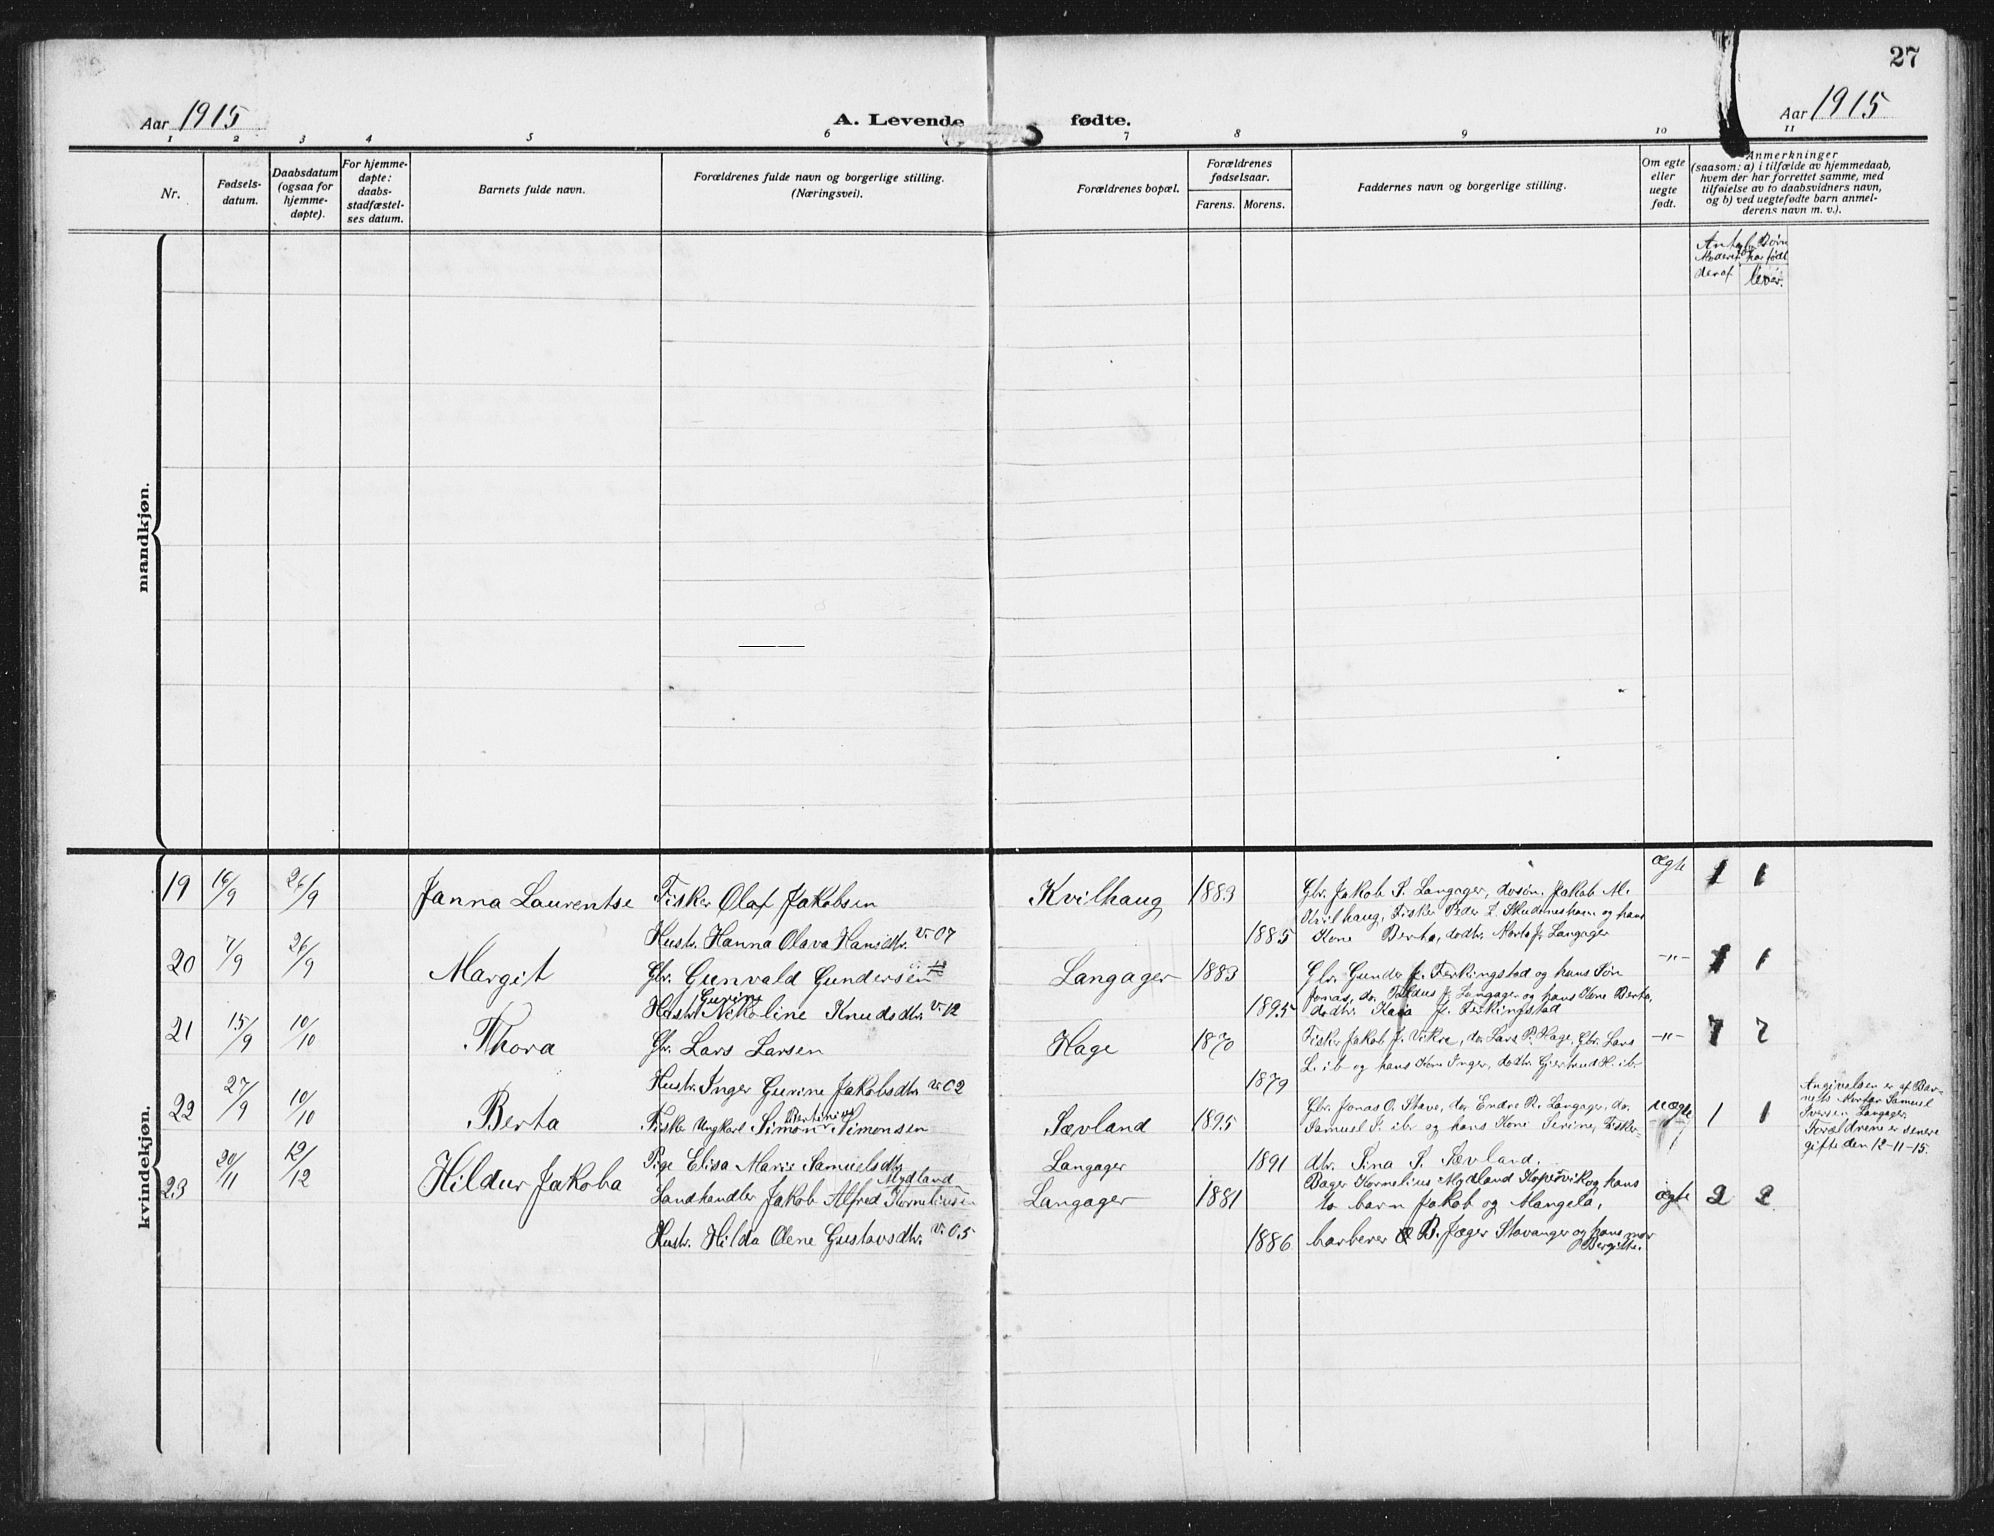 27
Aar 1915
A. Levende fødte.
Aar 1915
1 2 3 4 5 6 7 8 9 10 11
Nr.
Fødsels-
datum.
Daabsdatum
(ogsaa for
hjemme-
døpte).
For hjemme-
døpte:
daabs-
stadfæstel-
ses datum.
Barnets fulde navn.
Forældrenes fulde navn og borgerlige stilling.
(Næringsvei).
Forældrenes bopæl.
Forældrenes
fødselsaar.
Farens. Morens.
Faddernes navn og borgerlige stilling.
Om egte
eller
uegte
født.
Anmerkninger
(saasom: a) i tilfælde av hjemmedaab,
hvem der har forrettet samme, med
tilføielse av to daabsvidners navn,
og b) ved uegtefødte barn anmel-
derens navn m. v.).
Antal Børn
Moderen har født
deraf lever.
mandkjøn.
kvindekjøn.
19 16/9 26/9 Janna Laurentse Fisker Olaf Jakobsen Kvilhaug 1883 Gbr. Jakob S. Langager, do søn. Jakob M. ægte 1 1
Kvilhaug, Fisker Peder Skudeneshavn og hans
Hustr. Hanna Olava Hansdtr. v. 07 1885 Kone Berta, dodtr. Marta J. Langager
20 7/9 26/9 Margit Gbr. Gunvald Gundersen Langager 1883 Gbr. Gunder J. Ferkingstad og hans Søn -"- 1 1
Jonas, do. Taldus J. Langager og hans Kone Berta,
Hustr. Gurine Nikoline Knudsdtr. v. 12 1895 dodtr. Kaia J. Ferkingstad
21 15/9 10/10 Thora Gbr. Lars Larsen Hage 1870 Fisker Jakob J. Vikre, do. Lars P. Hage, Gbr. Lars -"- 7 7
L. ib og hans Kone Inger, dodtr. Gjertrud H. ib
Hustr. Inger Gurine Jakobsdtr. v. 02 1879
22 27/9 10/10 Berta Fisker Ungkarl Simon Bertinius Simonsen Sævland 1895 Gbr. Jonas O. Stave, do. Endre R. Langager, do. uægte 1 1
Samuel S. ibr og hans Kone Serine, Fisker-
Pige Elisa Marie Samuelsdtr. Langager 1891 dtr. Sina S. Sævland.
Angivelsen er af Bar-
nets Morfar Samuel
Iversen Langager.
Forældrene er senere
gifte den 12-11-15.
23 20/11 12/12 Hildur Jakoba Landhandler Jakob Alfred Kornelius en Mydland Langager 1881 Bager Kornelius Mydland Kopervik og hans ægte 2 2
to barn Jakob og Mangela,
Hustr. Hilda Olene Gustavsdtr. v. 05 1886 barberer B. Jæger Stavanger og hans mor
Bergitte.